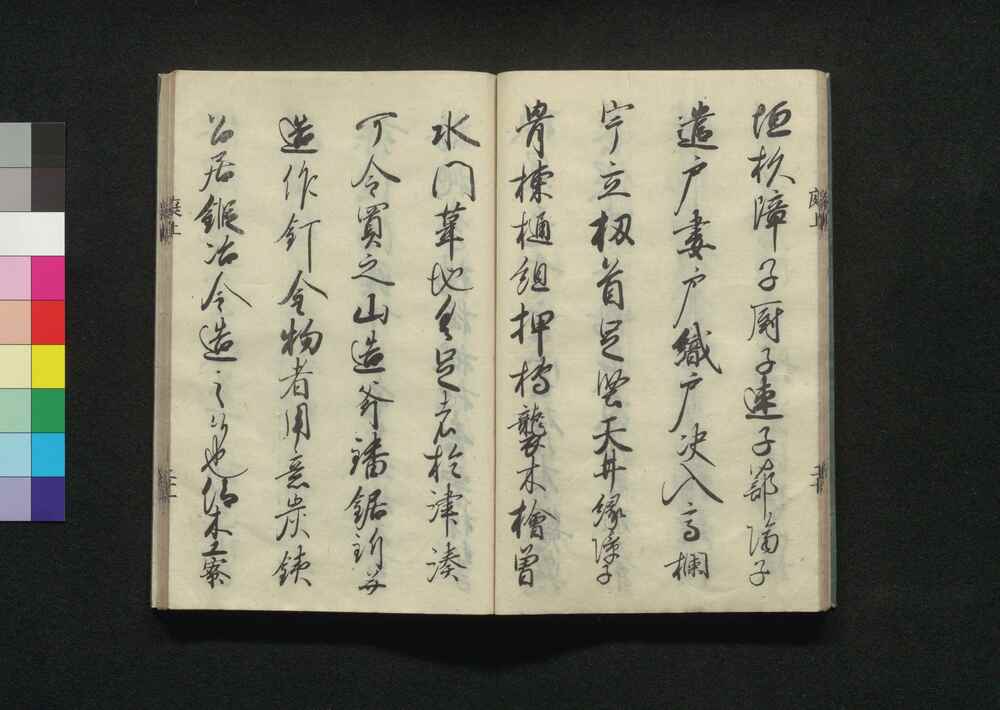 垣板障子厨子連子蔀隔子
遣戸妻戸織戸决入高欄
宇立扠首足堅天井縁障子
骨棟樋組押桁襲木檜曽
水門葦地具足者於津湊
可令買之山造斧鐇鋸釿等
造作釘金物者用意炭鉄
召居鍛冶令造之候也仍木工寮